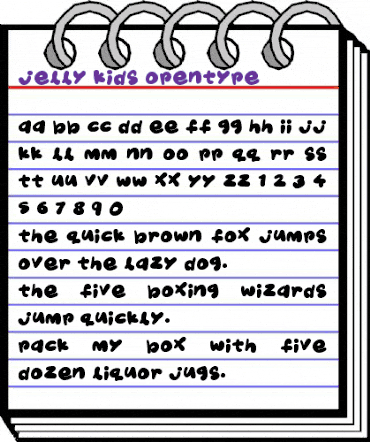 jelly kids opentype
aa bb cc dd ee ff gg hh ii jj
kk ll mm nn oo pp qq rr ss
tt uu vv ww xx yy zz 1 2 3 4
5 6 7 8 9 0
the quick brown fox jumps
over the lazy dog.
the five boxing wizards
jump quickly.
pack my box with five
dozen liquor jugs.